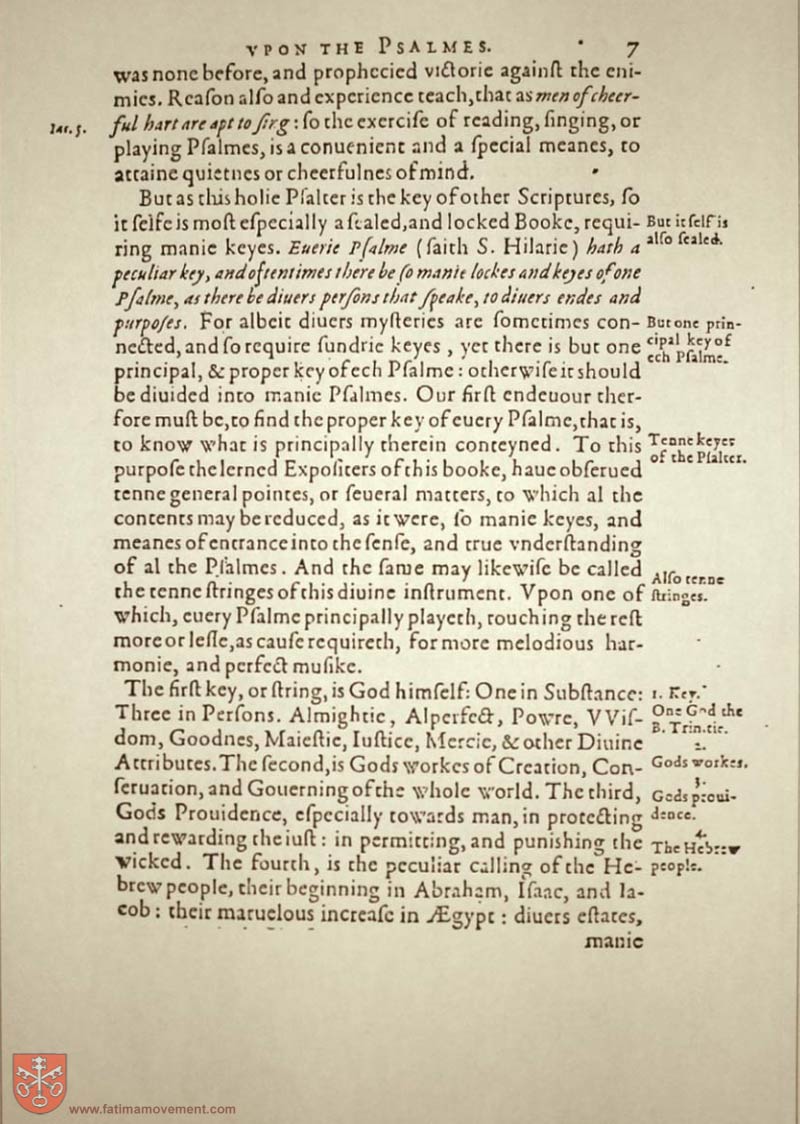 VPON THE PSALMES. 7
was none before, and prophecied victorie againſt the eni-
mies. Reaſon alſo and experience teach, that as men of cheer-
ful hart are apt to ſing: ſo the exerciſe of reading, ſinging, or
Iac. 5.
playing Pſalmes, is a conuenient and a ſpecial meanes, to
attaine quietnes or cheerfulnes of mind.
But as this holie Pſalter is the key of other Scriptures, ſo
it ſelfe is moſt eſpecially a ſealed, and locked Booke, requi-
But it ſelf is
alſo ſealed.
ring manie keyes. Euerie Pſalme (ſaith S. Hilarie) hath a
peculiar key, and oftentimes there be ſo manie lockes and keyes of one
Pſalme, as there be diuers perſons that ſpeake, to diuers endes and
purpoſes. For albeit diuers myſteries are ſometimes con-
nected, and ſo require ſundrie keyes, yet there is but one
principal, & proper key of ech Pſalme: otherwiſe it should
But one prin-
cipal key of
ech Pſalme.
be diuided into manie Pſalmes. Our firſt endeuour ther-
fore muſt be, to find the proper key of euery Pſalme, that is,
to know what is principally therein conteyned. To this
purpoſe the lerned Expoſiters of this booke, haue obſerued
Tenne keyes
of the Pſalter.
tenne general pointes, or ſeueral matters, to which al the
contents may be reduced, as it were, ſo manie keyes, and
meanes of entrance into the ſenſe, and true vnderſtanding
of al the Pſalmes. And the ſame may likewiſe be called
the tenne ſtringes of this diuine inſtrument. Vpon one of
Alſo tenne
ſtringes.
which, euery Pſalme principally playeth, touching the reſt
more or leſſe, as cauſe requireth, for more melodious har-
monie, and perfect muſike.
The firſt key, or ſtring, is God himſelf: One in Subſtance:
Three in Perſons. Almightie, Alperfect, Powre, VViſ-
dom, Goodnes, Maieſtie, Iuſtice, Mercie, & other Diuine
1. Key.
One God the
B. Trinitie.
Attributes. The ſecond, is Gods workes of Creation, Con-
2.
Gods workes.
ſeruation, and Gouerning of the whole world. The third,
Gods Prouidence, eſpecially towards man, in protecting
3.
Gods proui-
dence.
and rewarding the iuſt: in permitting, and punishing the
wicked. The fourth, is the peculiar calling of the He-
4.
The Hebrew
people.
brew people, their beginning in Abraham, Iſaac, and Ia-
cob: their maruelous increaſe in Ægypt: diuers eſtates,
manie
www.fatimamovement.com